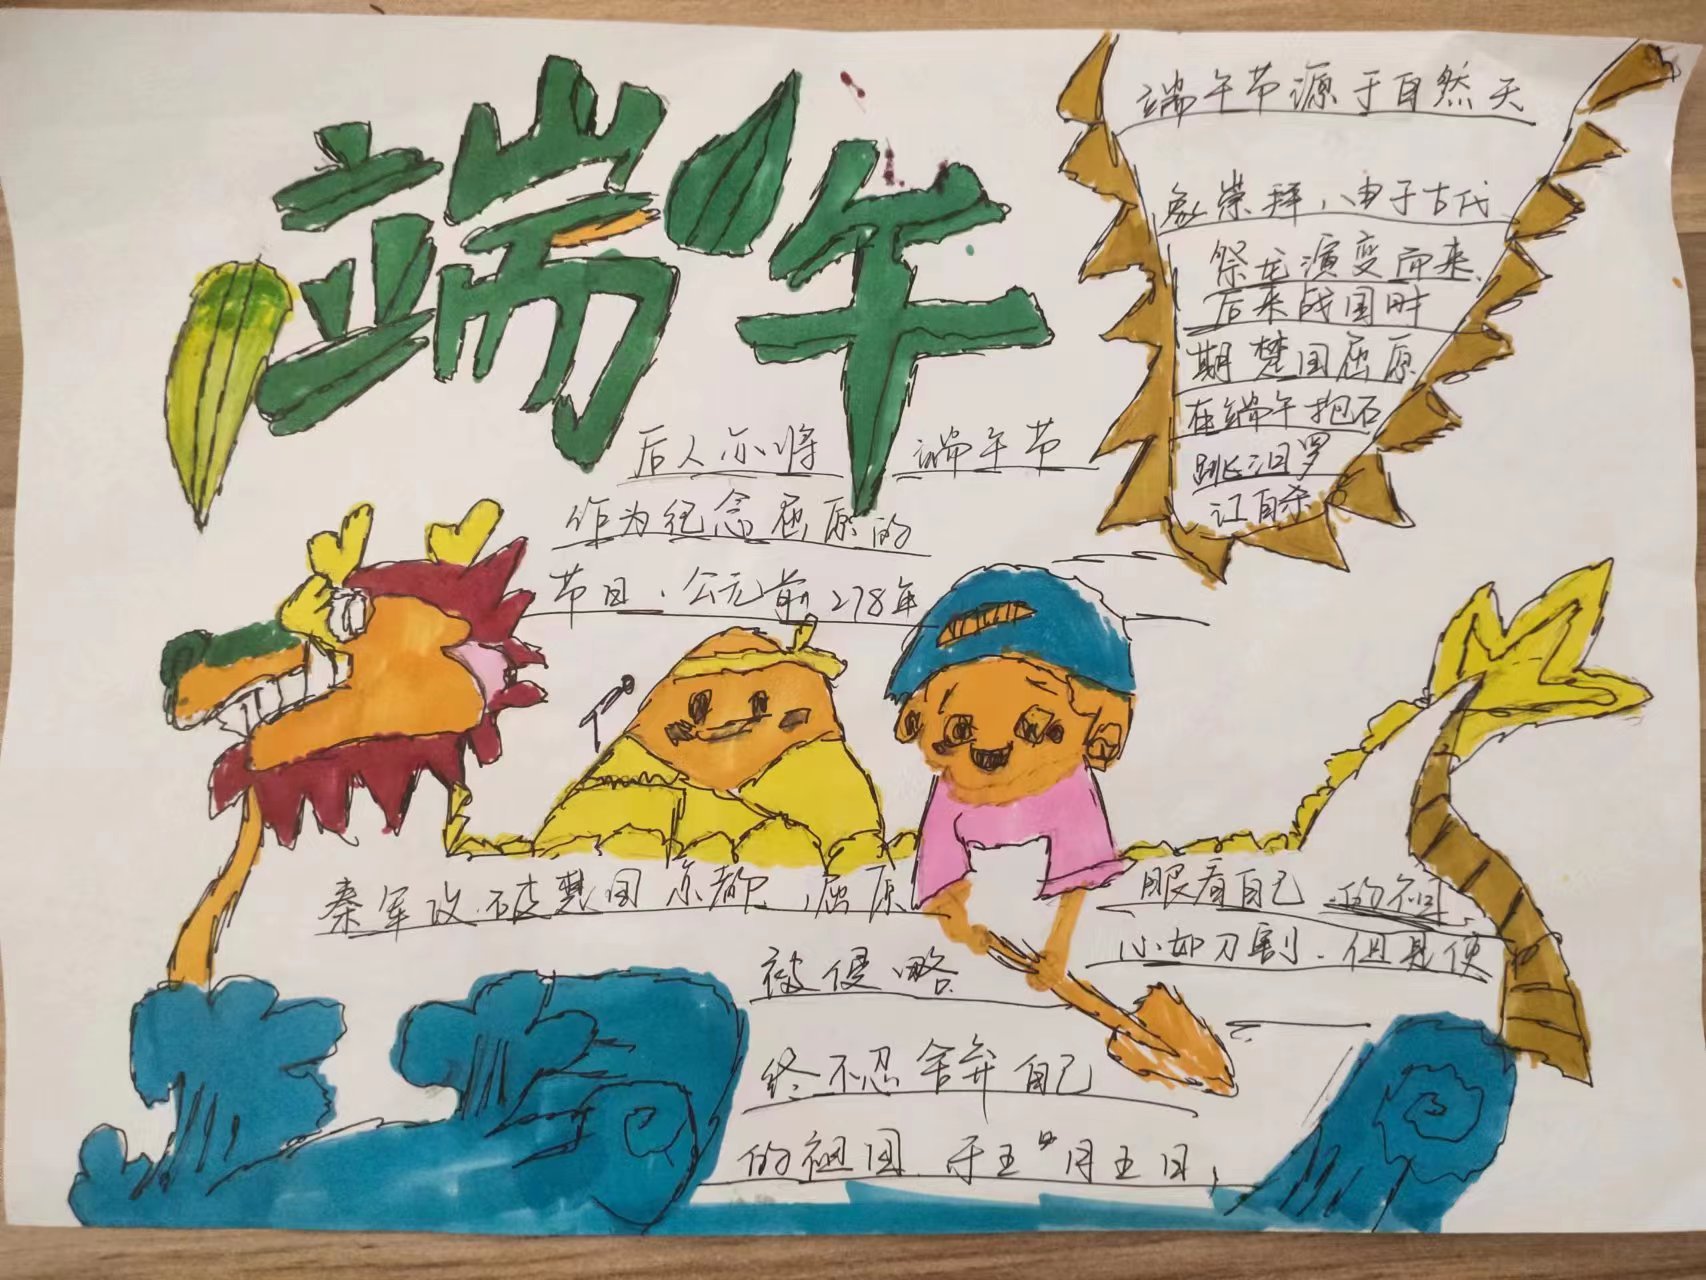 端午
端午节源于自然天
象崇拜、由于古代
祭龙演变而来、
后来战国时
期楚国屈原
在端午抱石
跳汨罗
江自杀
后人亦将 端午节
作为纪念屈原的
节日、公元前278年
秦军攻破楚国京都，屈原
眼看自己的祖
被侵略
心如刀割、但是使
终不忍舍弃自己
的祖国、于五月五日，